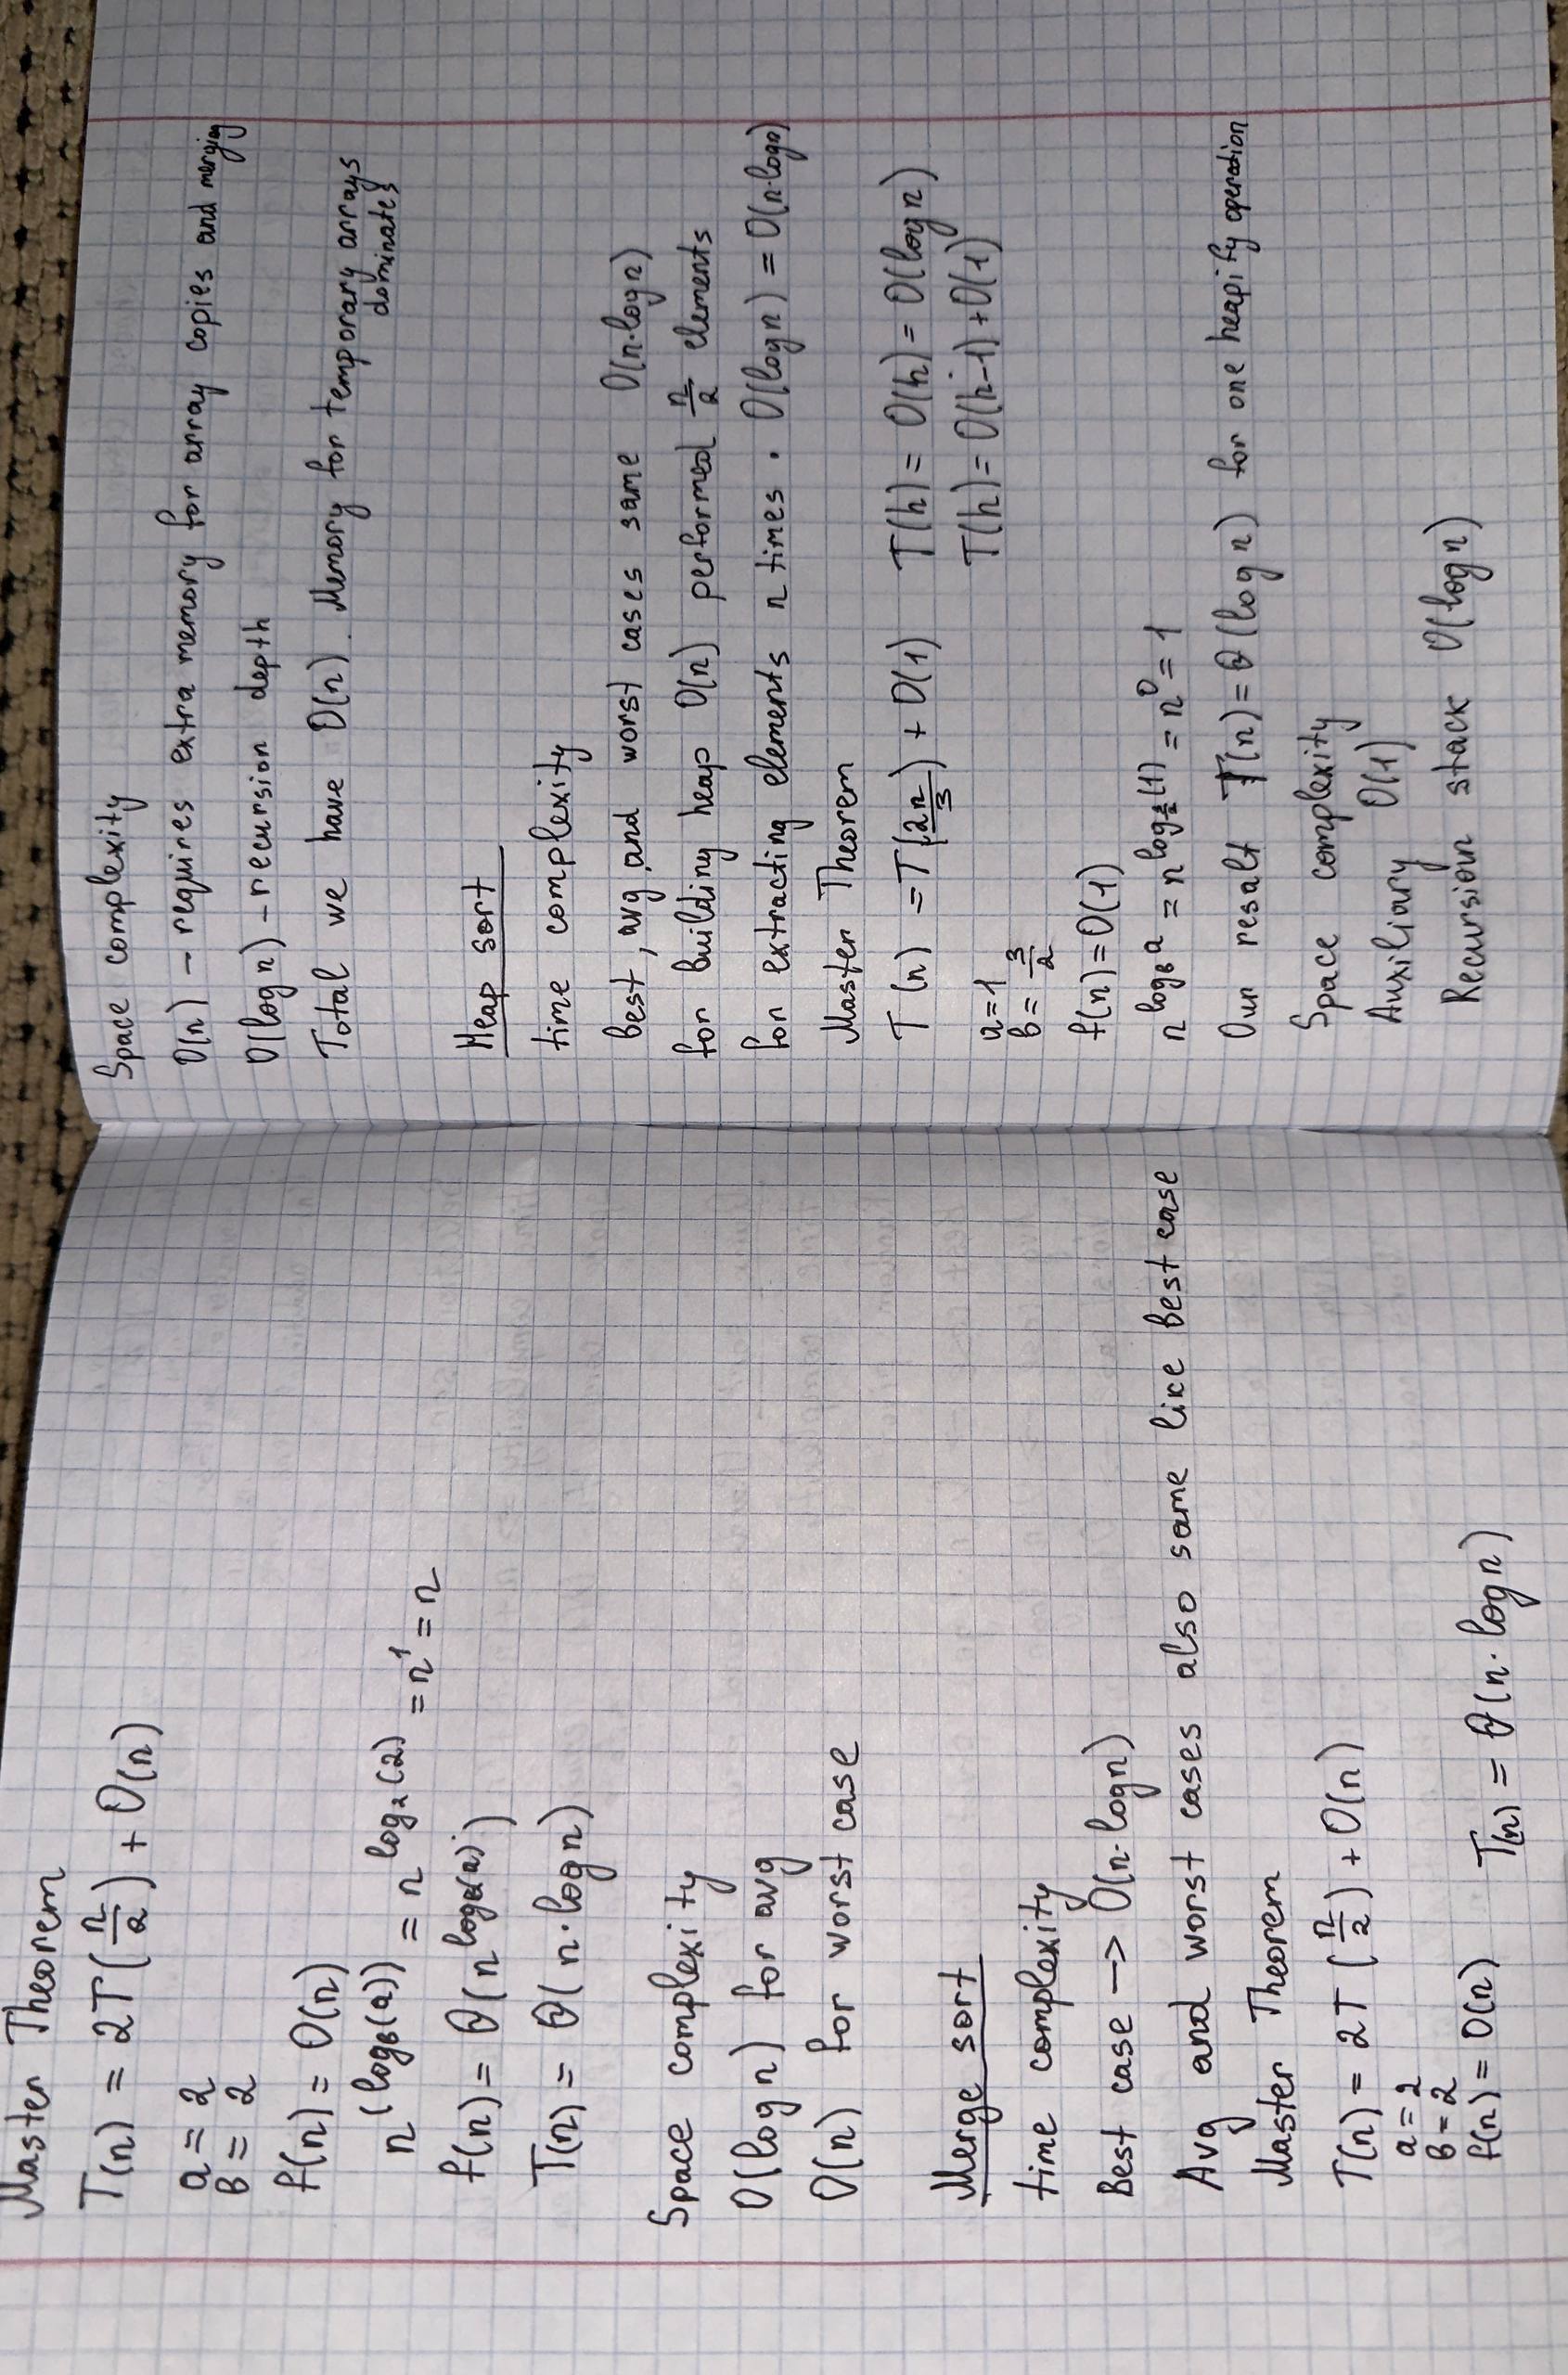 Master Theorem
T(n) = 2T(n/2) + O(n)
a = 2
b = 2
f(n) = O(n)
n^(log_b(a)) = n^log_2(2) = n^1 = n
f(n) = Θ(n^log_b(a))
T(n) = Θ(n·logn)
Space complexity
O(logn) for avg
O(n) for worst case
Merge sort
time complexity
Best case -> O(n·logn)
Avg and worst cases also same like best case
Master Theorem
T(n) = 2T(n/2) + O(n)
a = 2
b = 2
f(n) = O(n) T(n) = Θ(n·logn)
Space complexity
O(n) - requires extra memory for array copies and merging
O(logn) - recursion depth
Total we have O(n). Memory for temporary arrays
dominates
Heap sort
time complexity
best, avg, and worst cases same O(n·logn)
for building heap O(n) performed n/2 elements
for extracting elements n times · O(logn) = O(n·logn)
Master Theorem
T(n) = T(2n/3) + O(1) T(h) = O(h) = O(logn)
T(h) = O(h-1) + O(1)
a = 1
b = 3/2
f(n) = O(1)
n^log_b a = n^log_3/2(1) = n^0 = 1
Our resalt T(n) = Θ(logn) for one heapify operation
Space complexity
Auxiliary O(1)
Recursion stack O(logn)